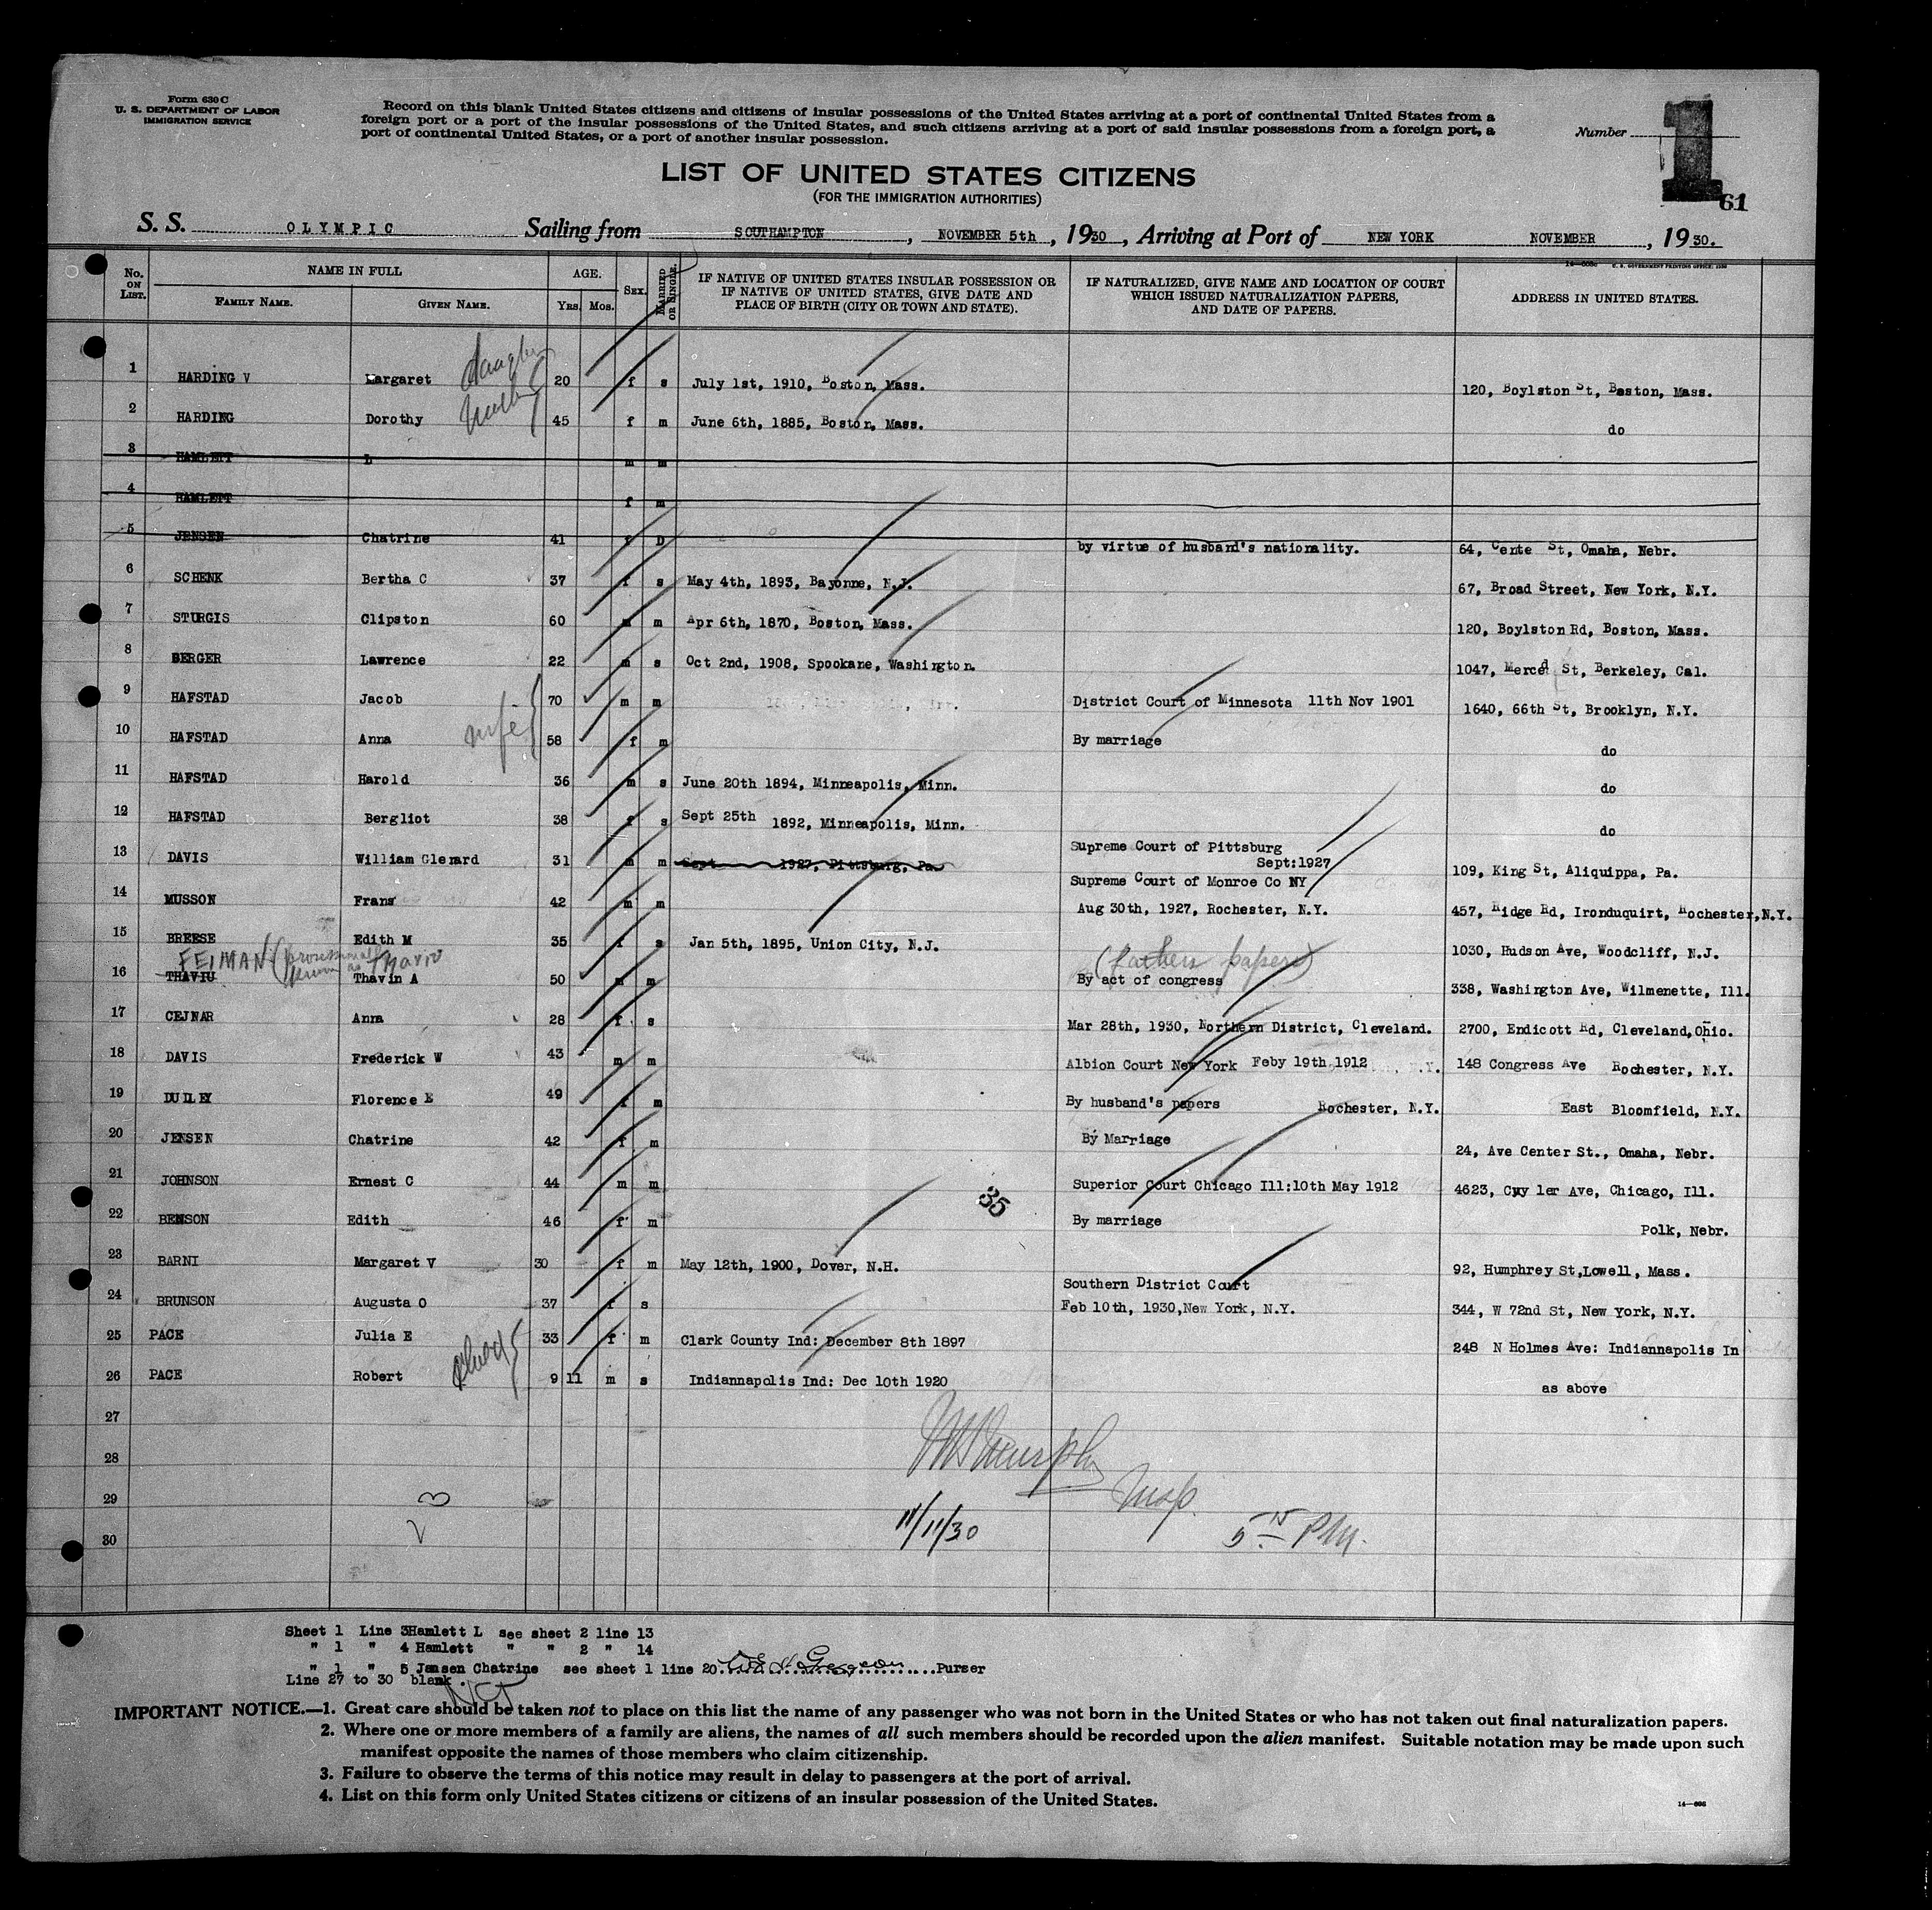 Form 630 C
U. S. DEPARTMENT OF LABOR
IMMIGRATION SERVICE
Record on this blank United States citizens and citizens of insular possessions of the United States arriving at a port of continental United States from a
foreign port or a port of the insular possessions of the United States, and such citizens arriving at a port of said insular possessions from a foreign port, a
port of continental United States, or a port of another insular possession.
Number 1
61
LIST OF UNITED STATES CITIZENS
(FOR THE IMMIGRATION AUTHORITIES)
S. S. OLYMPIC Sailing from SOUTHAMPTON, NOVEMBER 5th, 1930, Arriving at Port of NEW YORK NOVEMBER, 1930.
No. ON LIST. NAME IN FULL FAMILY NAME. GIVEN NAME. AGE. Yrs. Mos. SEX. MARRIED OR SINGLE. IF NATIVE OF UNITED STATES INSULAR POSSESSION OR IF NATIVE OF UNITED STATES, GIVE DATE AND PLACE OF BIRTH (CITY OR TOWN AND STATE). IF NATURALIZED, GIVE NAME AND LOCATION OF COURT WHICH ISSUED NATURALIZATION PAPERS, AND DATE OF PAPERS. ADDRESS IN UNITED STATES.
1 HARDING V Margaret 20 f s July 1st, 1910, Boston, Mass. 120, Boylston St, Boston, Mass.
2 HARDING Dorothy 45 f m June 6th, 1885, Boston, Mass. do
3 HAMLETT L m m
4 HAMLETT f m
5 JENSEN Chatrine 41 f D by virtue of husband's nationality. 64, Cente St, Omaha, Nebr.
6 SCHENK Bertha C 37 f s May 4th, 1893, Bayonne, N.J. 67, Broad Street, New York, N.Y.
7 STURGIS Clipston 60 m m Apr 6th, 1870, Boston, Mass. 120, Boylston Rd, Boston, Mass.
8 BERGER Lawrence 22 m s Oct 2nd, 1908, Spookane, Washington. 1047, Merced St, Berkeley, Cal.
9 HAFSTAD Jacob 70 m m District Court of Minnesota 11th Nov 1901 1640, 66th St, Brooklyn, N.Y.
10 HAFSTAD Anna wife 58 f m By marriage do
11 HAFSTAD Harold 36 m s June 20th 1894, Minneapolis, Minn. do
12 HAFSTAD Bergliot 38 f s Sept 25th 1892, Minneapolis, Minn. do
13 DAVIS William Glenard 31 m m Sept 1927, Pittsburg, Pa. Supreme Court of Pittsburg Sept:1927 109, King St, Aliquippa, Pa.
14 MUSSON Frans 42 m m Supreme Court of Monroe Co NY Aug 30th, 1927, Rochester, N.Y. 457, Ridge Rd, Ironduquirt, Rochester, N.Y.
15 BREESE Edith M 35 f s Jan 5th, 1895, Union City, N.J. 1030, Hudson Ave, Woodcliff, N.J.
FEIMAN (professional known as Thaviu (fathers papers)
16 THAVIU Thavin A 50 m m By act of congress 338, Washington Ave, Wilmenette, Ill.
17 CEJNAR Anna 28 f s Mar 28th, 1930, Northern District, Cleveland. 2700, Endicott Rd, Cleveland, Ohio.
18 DAVIS Frederick W 43 m m Albion Court New York Feby 19th 1912 148 Congress Ave Rochester, N.Y.
19 DUDLEY Florence E 49 f m By husband's papers Rochester, N.Y. East Bloomfield, N.Y.
20 JENSEN Chatrine 42 f m By Marriage 24, Ave Center St., Omaha, Nebr.
21 JOHNSON Ernest C 44 m m Superior Court Chicago Ill:10th May 1912 4623, Cuyler Ave, Chicago, Ill.
35
22 BENSON Edith 46 f m By marriage Polk, Nebr.
23 BARNI Margaret V 30 f m May 12th, 1900, Dover, N.H. 92, Humphrey St, Lowell, Mass.
24 BRUNSON Augusta O 37 f s Southern District Court Feb 10th, 1930, New York, N.Y. 344, W 72nd St, New York, N.Y.
25 PACE Julia E 33 f m Clark County Ind: December 8th 1897 248 N Holmes Ave: Indiannapolis In
26 PACE Robert 9 11 m s Indiannapolis Ind: Dec 10th 1920 as above
27
28
29
30
11/11/30
5 15 PM.
Sheet 1 Line 3 Hamlett L see sheet 2 line 13
" 1 " 4 Hamlett " " 2 " 14
" 1 " 5 Jensen Chatrine see sheet 1 line 20 Purser
Line 27 to 30 blank.
IMPORTANT NOTICE.—1. Great care should be taken not to place on this list the name of any passenger who was not born in the United States or who has not taken out final naturalization papers.
2. Where one or more members of a family are aliens, the names of all such members should be recorded upon the alien manifest. Suitable notation may be made upon such
manifest opposite the names of those members who claim citizenship.
3. Failure to observe the terms of this notice may result in delay to passengers at the port of arrival.
4. List on this form only United States citizens or citizens of an insular possession of the United States.